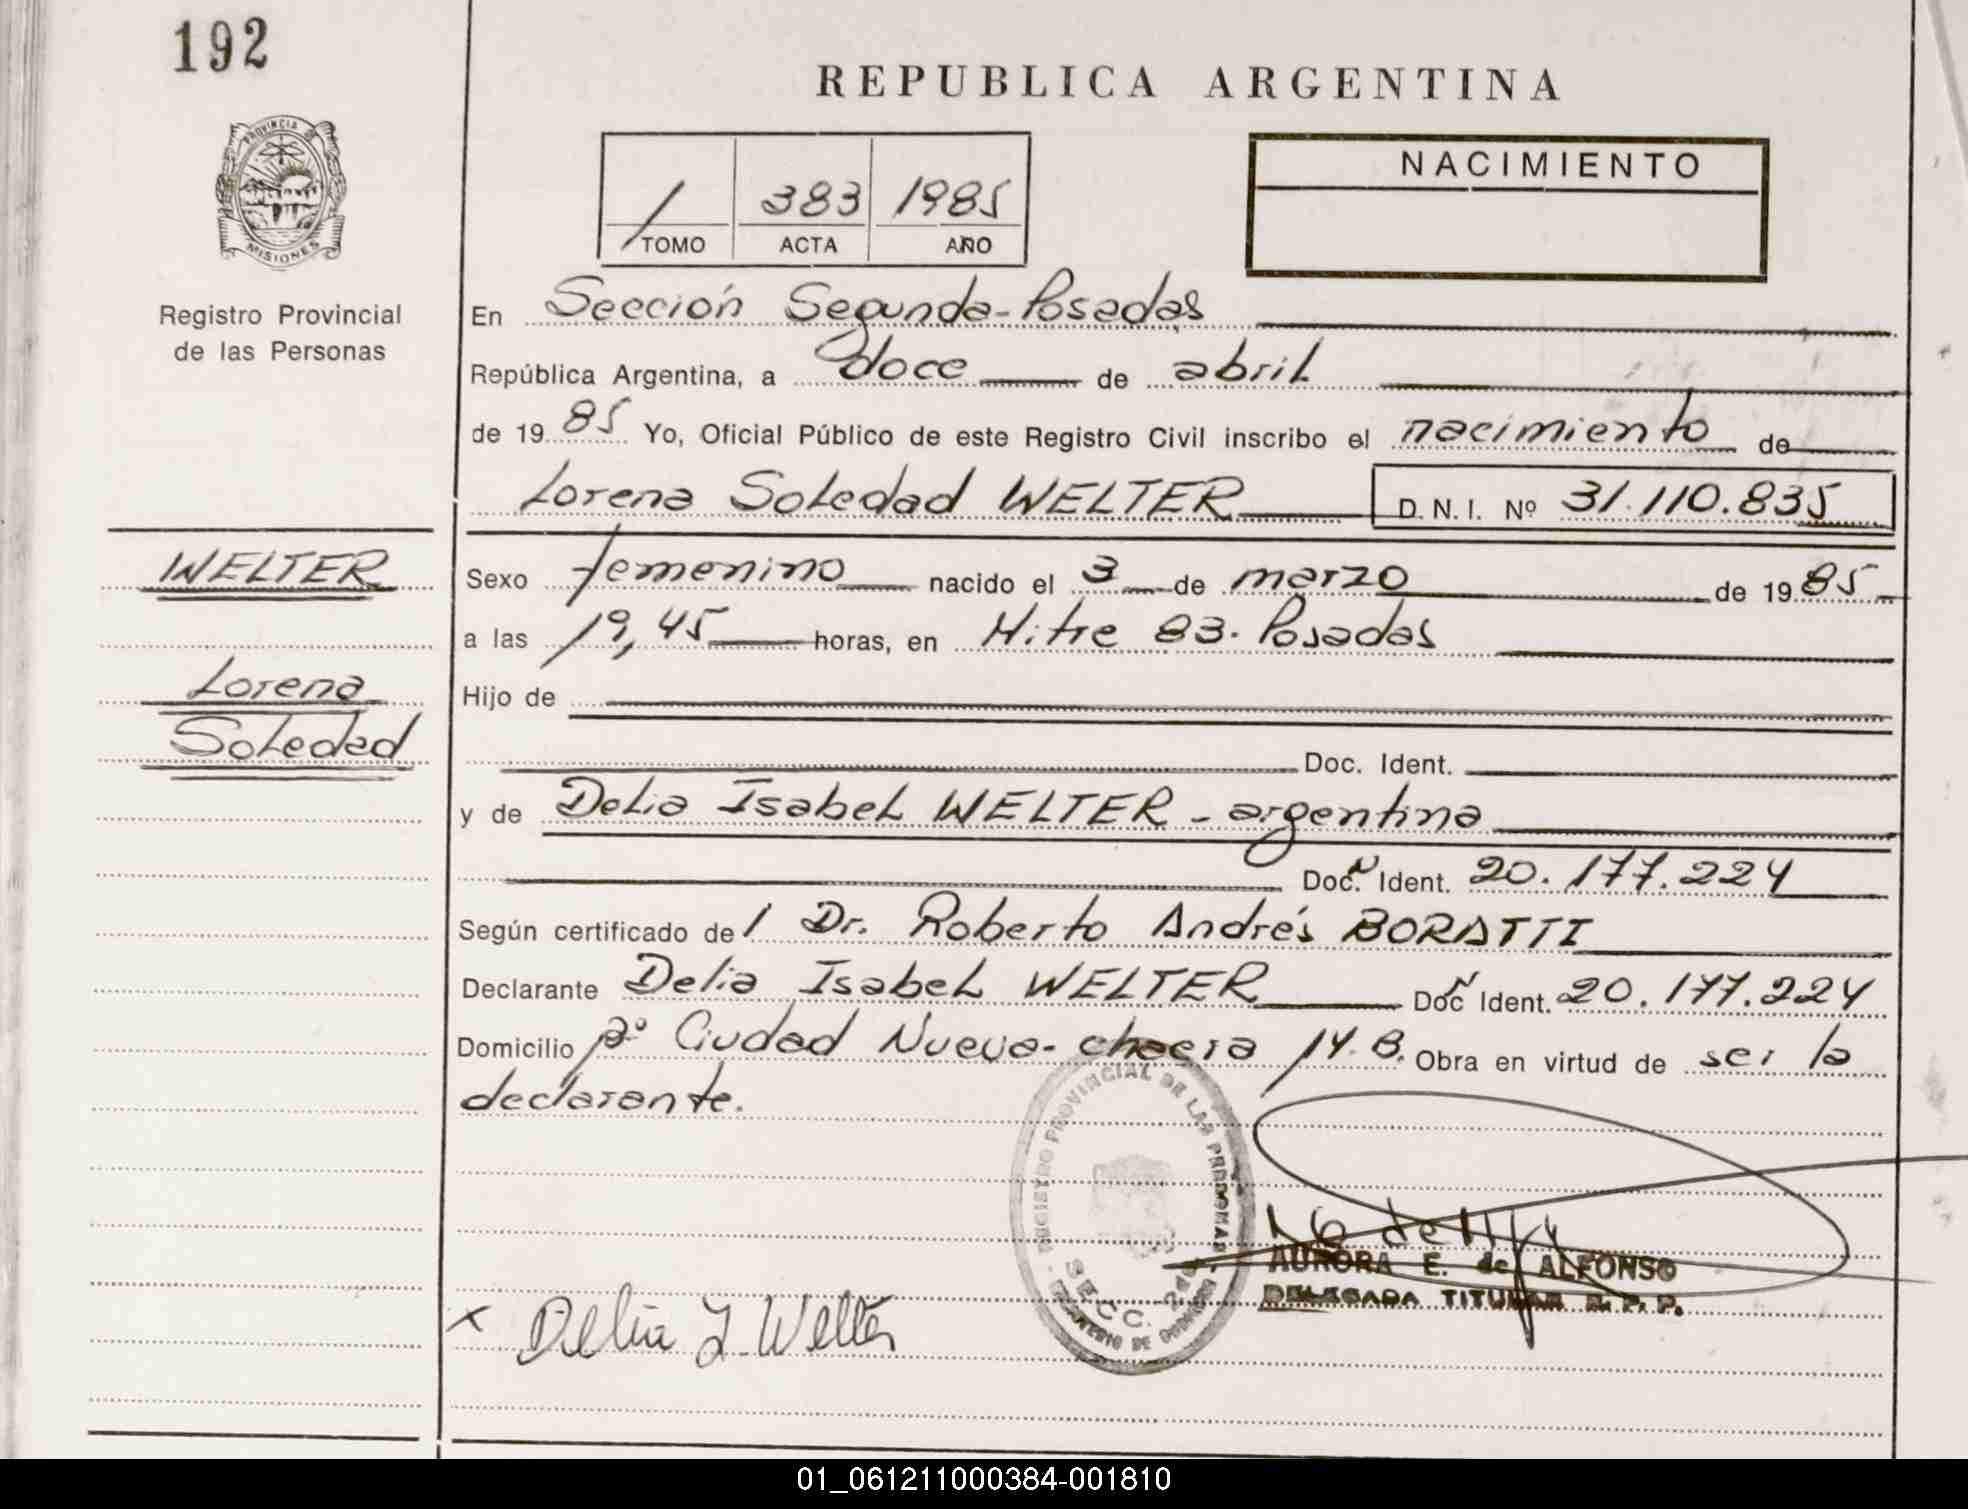 192
REPUBLICA ARGENTINA
PROVINCIA DE
MISIONES
Registro Provincial
de las Personas
NACIMIENTO
/ 383 1985
TOMO ACTA AÑO
En Sección Segunda-Posadas
República Argentina, a doce de abril
de 1985 Yo, Oficial Público de este Registro Civil inscribo el nacimiento de
Lorena Soledad WELTER D.N.I. Nº 31.110.835
WELTER
Lorena
Soledad
Sexo femenino nacido el 3 de marzo de 1985
a las 19,45 horas, en Mitre 83. Posadas
Hijo de
Doc. Ident.
y de Delia Isabel WELTER - argentina
Doc. Ident. 20.177.224
Según certificado del Dr. Roberto Andrés BORATTI
Declarante Delia Isabel WELTER Doc Ident. 20.177.224
Domicilio Ciudad Nueva- chacra 14. B. Obra en virtud de ser la
declarante.
REGISTRO PROVINCIAL DE LAS PERSONAS
SECC. 2da
AURORA E. de ALFONSO
DELEGADA TITULAR R. P. P.
x Delia I. Welter
01_061211000384-001810